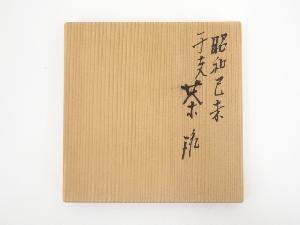 昭和己未
干支茶碗